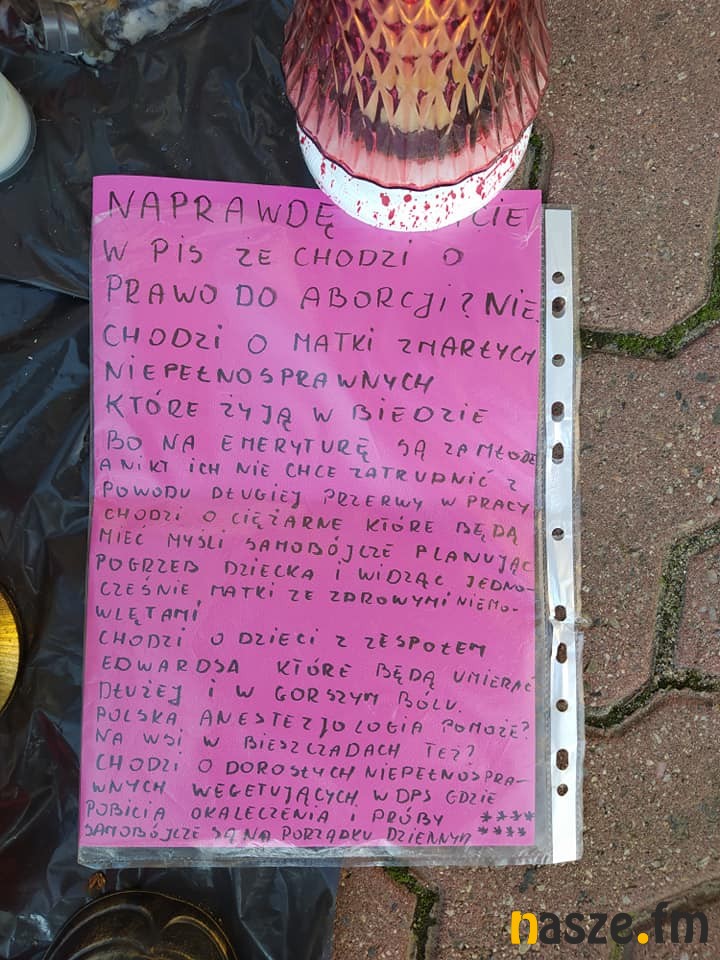 NAPRAWDĘ CIE
W PIS ŻE CHODZI O
PRAWO DO ABORCJI? NIE.
CHODZI O MATKI ZMARŁYCH
NIEPEŁNOSPRAWNYCH
KTÓRE ŻYJĄ W BIEDZIE
BO NA EMERYTURĘ SĄ ZA MŁODE
A NIKT ICH NIE CHCE ZATRUDNIĆ Z
POWODU DŁUGIEJ PRZERWY W PRACY
CHODZI O CIĘŻARNE KTÓRE BĘDĄ
MIEĆ MYŚLI SAMOBÓJCZE PLANUJĄC
POGRZEB DZIECKA I WIDZĄC JEDNO-
CZEŚNIE MATKI ZE ZDROWYMI NIEMO-
WLĘTAMI
CHODZI O DZIECI Z ZESPOŁEM
EDWARDSA KTÓRE BĘDĄ UMIERAĆ
DŁUŻEJ I W GORSZYM BÓLU.
POLSKA ANESTEZJOLOGIA POMOŻE?
NA WSI W BIESZCZADACH TEŻ?
CHODZI O DOROSŁYCH NIEPEŁNOSPRA-
WNYCH WEGETUJĄCYCH W DPS GDZIE
POBICIA OKALECZENIA I PRÓBY ****
SAMOBÓJCZE SĄ NA PORZĄDKU DZIENNYM ****
nasze.fm